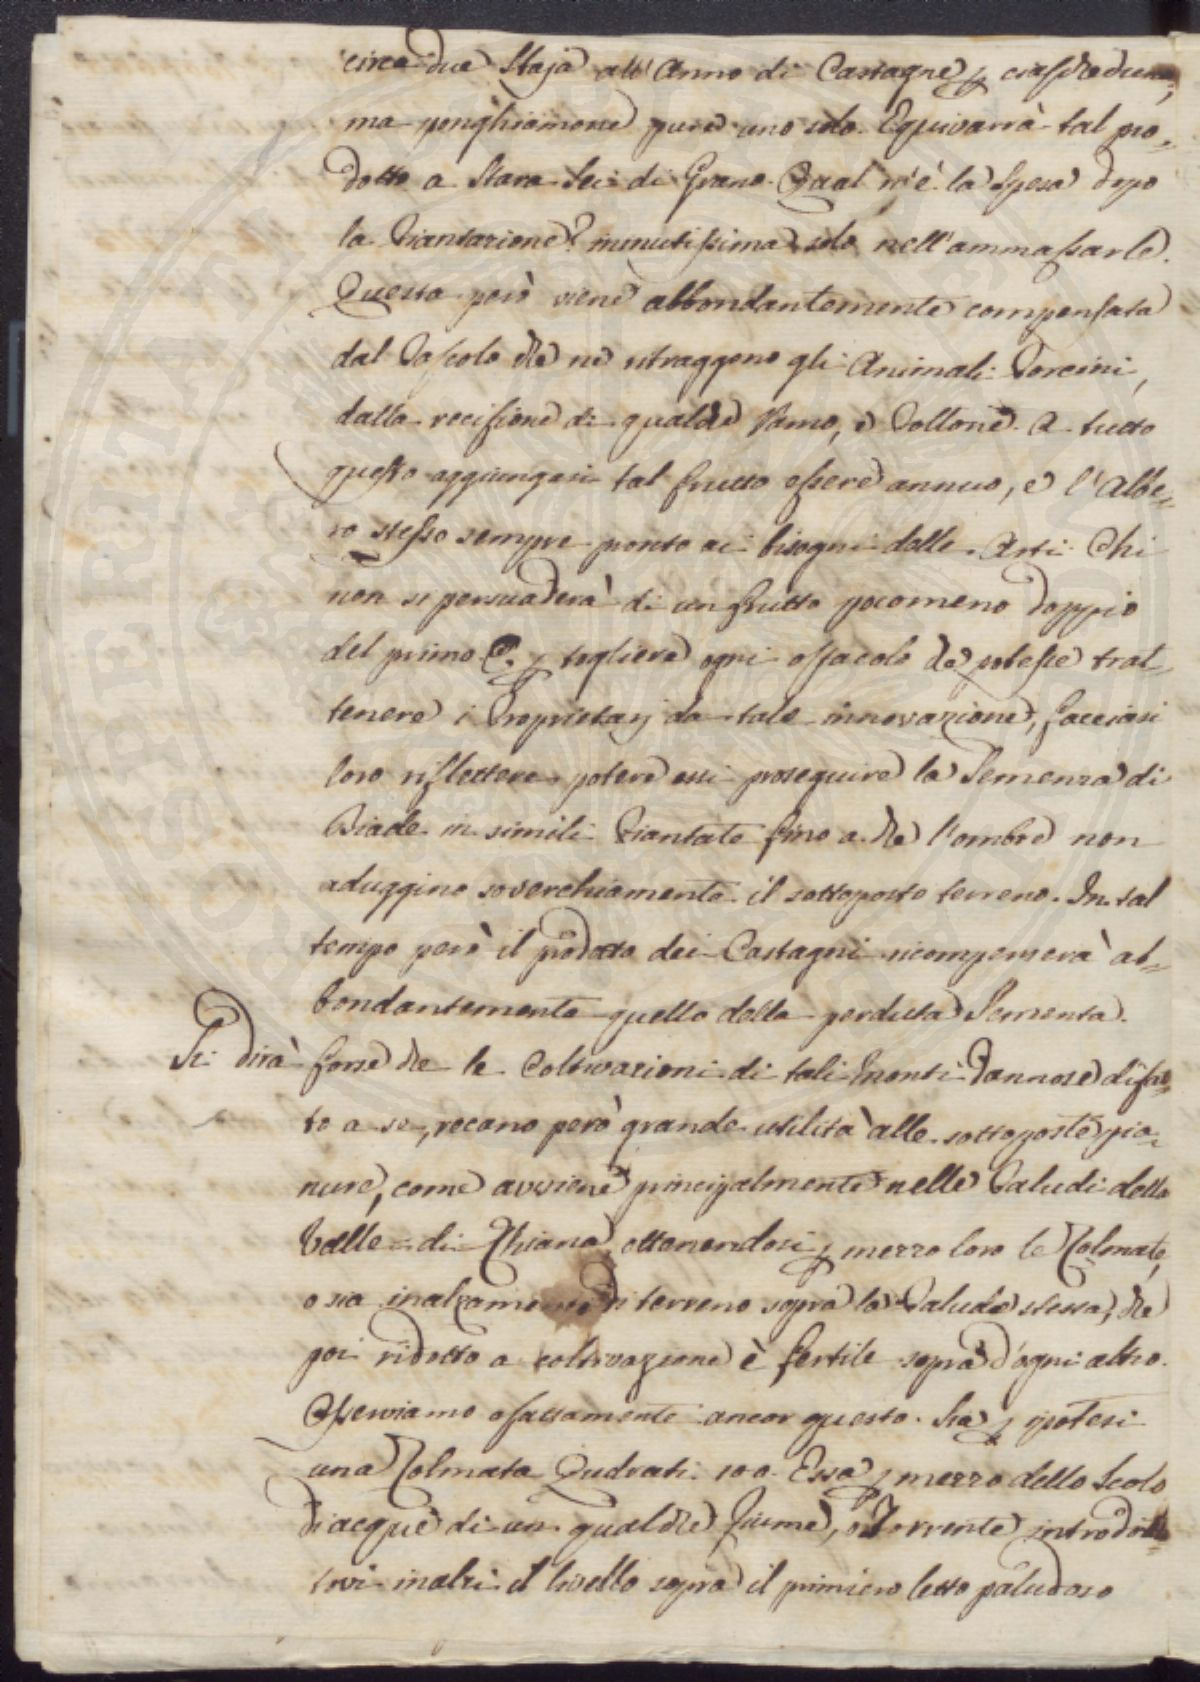 circa due Staja all'Anno di Castagne p ciascheduna,
ma ponghiamone pure uno solo. Equivarrà tal pro-
dotto a Stara Sei di Grano. Qual n'è la Spesa dopo
la Piantazione? minutissima solo nell'ammassarle.
Questa però viene abbondantemente compensata
dal Pascolo che ne ritraggono gli Animali Porcini,
dalla recisione di qualche Ramo, e Pollone. A tutto
questo aggiungasi tal frutto essere annuo, e l'Albe-
ro stesso sempre pronto ai bisogni delle Arti. Chi
non si persuaderà di un frutto pocomeno doppio
del primo? E p togliere ogni ostacolo che potesse trat-
tenere i Proprietarj da tale innovazione, facciasi
loro riflettere potere essi proseguire la Semenza di
Biade in simili Piantate fino a che l'ombre non
aduggino soverchiamente il sottoposto terreno. In tal
tempo però il prodotto dei Castagni ricompenserà ab-
bondantemente quello della perduta Sementa.
Si dirà forse che le Coltivazioni di tali Monti dannose
to a se, recano però grande utilità alle sottoposte pia-
nure, come avviene principalmente nelle Paludi della
Valle di Chiana, ottenendosi p mezzo loro le Colmate,
o sia inalzamento di terreno sopra la Palude stessa, che
poi ridotto a coltivazione è fertile sopra d'ogni altro.
Osserviamo esattamente ancor questo. Sia p ipotesi
una Colmata Quadrati 100. Essa p mezzo dello Scolo
di acque di un qualche fiume, o Torrente introdotto-
vi inalzi il livello sopra il primiero letto paludoso